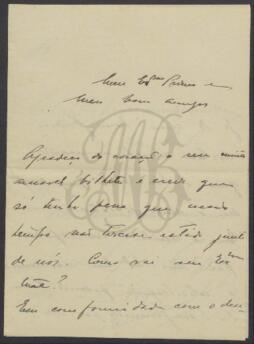 Meu Exmo Primo e
Meu bom amigo
Agradeço do coração o seu muito
amavel bilhete e creia que
só tenho pena que
tempo não tivesse estado junto
de nós. Como vai seu
Em conformidade com o